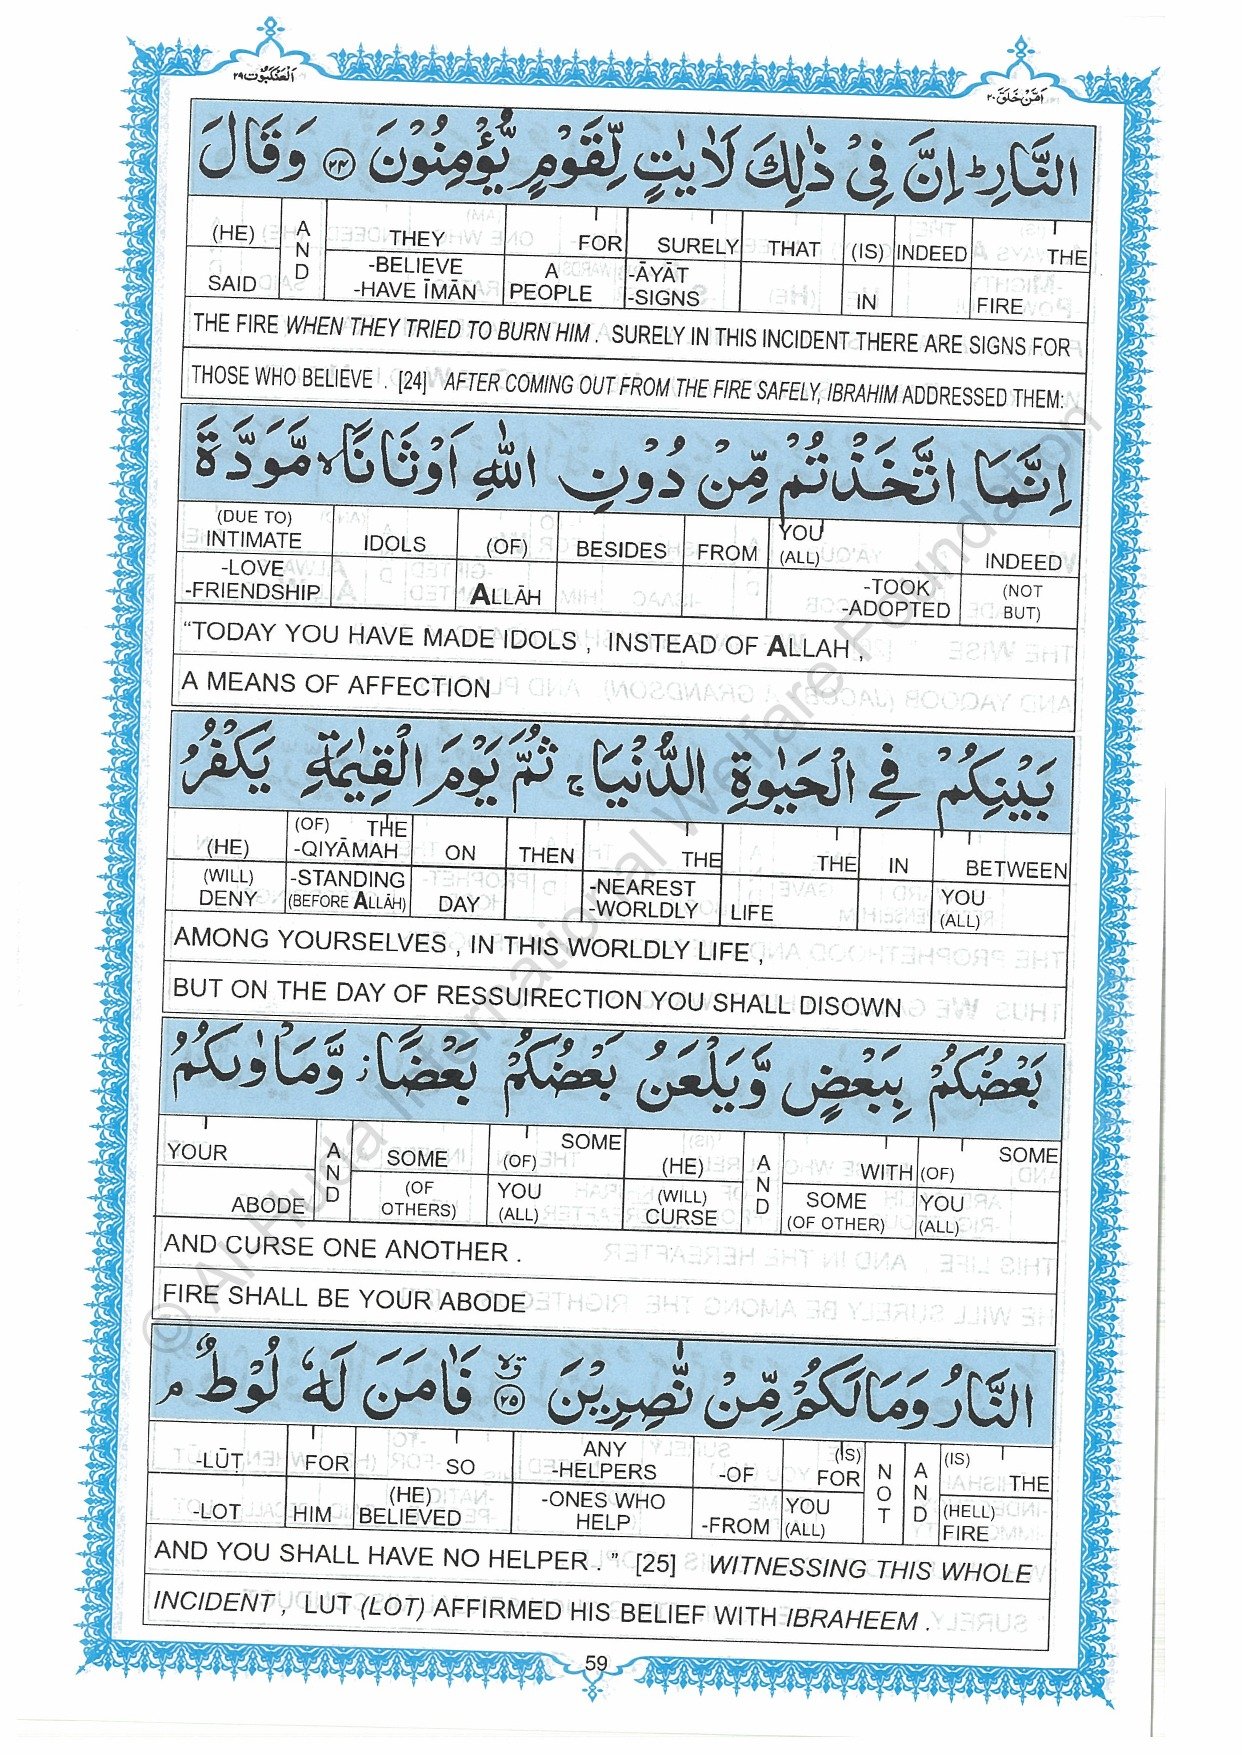 العنكبوت ٢٩
امن خلق ٢٠
النَّارِ ؕ اِنَّ فِیْ ذٰلِكَ لَاٰیٰتٍ لِّقَوْمٍ یُّؤْمِنُوْنَ ﴿۲۴﴾ وَقَالَ
(HE) AND THEY FOR SURELY THAT (IS) INDEED THE
SAID -BELIEVE -HAVE ĪMĀN A PEOPLE -ĀYĀT -SIGNS IN FIRE
THE FIRE WHEN THEY TRIED TO BURN HIM . SURELY IN THIS INCIDENT THERE ARE SIGNS FOR
THOSE WHO BELIEVE . [24] AFTER COMING OUT FROM THE FIRE SAFELY, IBRAHIM ADDRESSED THEM:
اِنَّمَا اتَّخَذْتُمْ مِّنْ دُوْنِ اللّٰهِ اَوْثَانًا ۙ مَّوَدَّةَ
(DUE TO) INTIMATE IDOLS (OF) BESIDES FROM YOU (ALL) INDEED
-LOVE -FRIENDSHIP ALLĀH -TOOK -ADOPTED (NOT BUT)
“TODAY YOU HAVE MADE IDOLS , INSTEAD OF ALLAH ,
A MEANS OF AFFECTION
بَیْنِكُمْ فِی الْحَیٰوةِ الدُّنْیَا ۚ ثُمَّ یَوْمَ الْقِیٰمَةِ یَكْفُرُ
(HE) (OF) THE -QIYĀMAH ON THEN THE THE IN BETWEEN
(WILL) DENY -STANDING (BEFORE ALLĀH) DAY -NEAREST -WORLDLY LIFE YOU (ALL)
AMONG YOURSELVES , IN THIS WORLDLY LIFE ,
BUT ON THE DAY OF RESSUIRECTION YOU SHALL DISOWN
بَعْضُكُمْ بِبَعْضٍ وَّیَلْعَنُ بَعْضُكُمْ بَعْضًا ؗ وَّمَاْوٰىكُمُ
YOUR AND SOME SOME (OF) (HE) AND WITH SOME (OF)
ABODE (OF OTHERS) YOU (ALL) (WILL) CURSE SOME (OF OTHER) YOU (ALL)
AND CURSE ONE ANOTHER .
FIRE SHALL BE YOUR ABODE
النَّارُ وَمَا لَكُمْ مِّنْ نّٰصِرِیْنَ ﴿۲۵﴾ فَاٰمَنَ لَهٗ لُوْطٌ ۘ
-LŪṬ FOR SO ANY -HELPERS -OF (IS) FOR NOT AND (IS) THE
-LOT HIM (HE) BELIEVED -ONES WHO HELP -FROM YOU (ALL) (HELL) FIRE
AND YOU SHALL HAVE NO HELPER . ” [25] WITNESSING THIS WHOLE
INCIDENT , LUT (LOT) AFFIRMED HIS BELIEF WITH IBRAHEEM .
59
© Al-Huda International Welfare Foundation